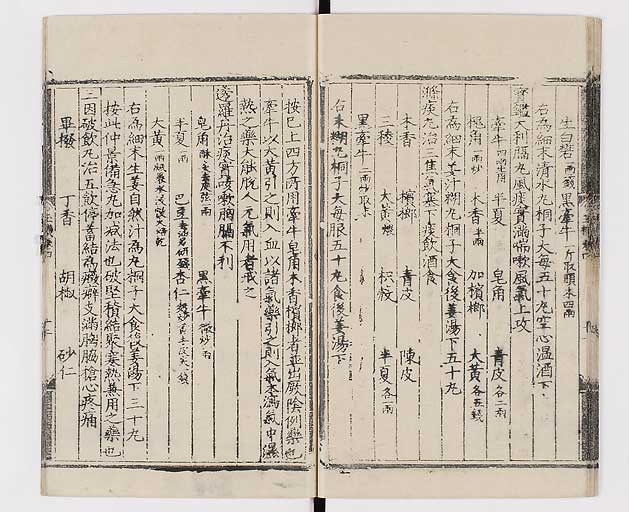 生白礬 一兩 黑牽牛 一斤取頭末四兩
右為細末清水丸桐子大每五十丸空心溫酒下
寶鑑大利膈丸風痰胷滿喘嗽風氣上攻
牽牛 四兩 半夏 皂角 青皮 各二兩
槐角 一兩炒 木香 半兩 加檳榔 大黃 各五錢
右為細末姜汁糊丸桐子大食後姜湯下五十丸
滌痰丸治三焦氣塞下痰飲消食
木香 檳榔 青皮 陳皮
三稜 大黃 煨 枳殼 半夏 各一兩
黑牽牛 二兩炒取末
右末糊丸桐子大每服五十丸食後姜湯下
按已上四方所用牽牛皂角木香檳榔者並出厥陰例藥也
牽牛以大黃引之則入血以諸氣藥引之則入氣本瀉氣中濕
熱之藥大能脫人元氣用者戒之
透羅丹治痰胷咳嗽胸膈不利
皂角 酥炙去皮弦一兩 黑牽牛 微炒一兩
半夏 一兩 巴豆 杏仁
大黃 一兩
右為細末生姜自然汁為丸桐子大食後姜湯下三十丸
按此仲景備急丸加減法也破堅積結聚寒熱兼用之藥也
三因破飲丸治五飲停蓄結為癥癖支滿胸脇搶心疼痛
蓽撥 丁香 胡椒 砂仁